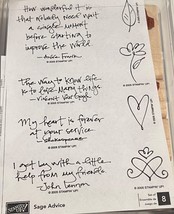 How wonderful it is
that nobody need wait
a single moment
before starting to
improve the world
- Anne Frank
© 2005 STAMPIN' UP!
The way to know life
is to love many things
- Vincent Van Gogh
© 2005 STAMPIN' UP!
My heart is forever
at your service
- Shakespeare
© 2005 STAMPIN' UP!
I get by with a little
help from my friends
- John Lennon
© 2005 STAMPIN' UP!
© 2005 STAMPIN' UP!
© 2005 STAMPIN' UP!
© 2005 STAMPIN' UP!
STAMPIN' UP!
Sage Advice
Set of
Ensemble de
8